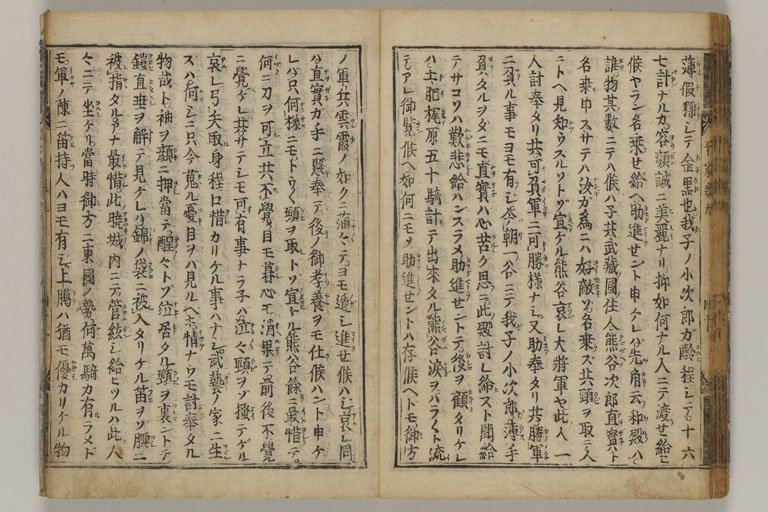 薄假粧シテ金黒也我子ノ小次郎カ齢程ニテ十六
七計ナルカ容顔誠ニ美麗ナリ抑如何ナル人ニテ渡せ給ヒ
候ヤラン名乗せ給ヘ助進せント申ケレハ先角云和殿ハ
誰物其数ニテハ候ハ子共武藏國住人熊谷次郎直實ト
名乗申スサテハ汝カ爲ニハ好敵ソ名乗ス共頸ヲ取テ人
ニトヘ見知ウスルソトソ宣ケル熊谷哀レ大將軍ヤ此人一
人討奉タリ共可負軍ニ可勝様ナシ又助奉タリ共勝軍
ニ負ル事モヨモ有シ今朝一谷ニテ我子ノ小次郎カ薄手
負タルヲダニモ直實ハ心苦ク思ニ此殿討レ給ヌト聞給
テサコソハ歎悲給ハンズラメ助進せントテ後ヲ顧タリケレ
ハ土肥梶原五十騎計テ出來タル熊谷涙ヲハラ〳〵ト流
テアレ御覧候ヘ如何ニモメ助進せントハ存候ヘトモ御方
ノ軍兵雲霞ノ如クニ滿々テヨモ遁シ進せ候ハシ哀レ同
ハ直實カ手ニ懸奉テ後ノ御孝養ヲモ仕候ハント申ケ
レハ只何様ニモトウ〳〵頸ヲ取トソ宣ケル熊谷餘ニ最惜テ
何ニ刀ヲ可立共不覺目モ暮心モ消果テ前後不覺
ニ覺ケレ共サテシモ可有事ナラ子ハ泣々頸ヲソ掻テゲル
哀レ弓矢取身程口惜カリケル事ハナシ武藝ノ家ニ生
スハ何シニ只今蒐ル憂目ヲハ見ルヘキ情ナウモ討奉タル
物哉ト袖ヲ顔ニ押當テ醒々トソ泣居タル頸ヲ裹ントテ
鎧直垂ヲ解テ見ケレハ錦ノ袋ニ被入タリケル笛ヲソ腰ニ
被指タルアナ最惜此暁城内ニテ管絃シ給ヒツルハ此人
々ニテ坐ケリ當時御方ニ東國ノ勢何萬騎カ有ラメド
モ軍ノ陳ニ笛持人ハヨモ有シ上臈ハ猶モ優カリケル物